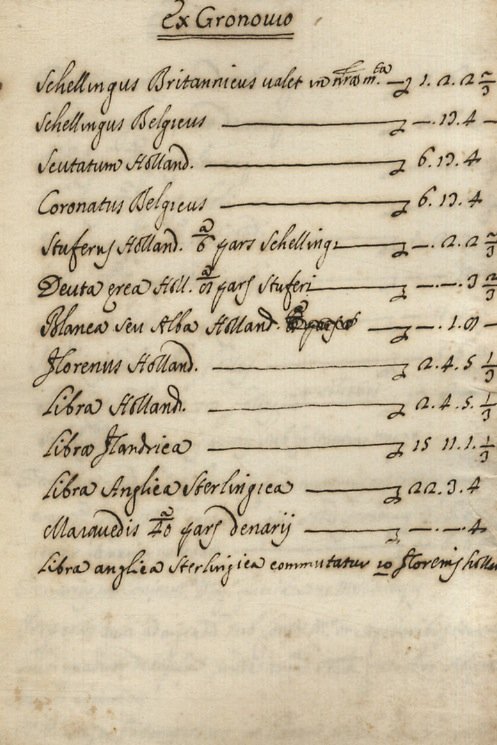 Ex Gronovio
Schellingus Britannicus valet in nrãm.ta — 1. 2. 2 2/3
Schellingus Belgicus — —. 13. 4 —
Scutatum Holland. — 6. 13. 4
Coronatus Belgicus — 6. 13. 4
Stuferus Holland. 6ª pars Schellingi — —. 2. 2 2/3
Deuta ęrea Holl. 8ª pars Stuferi — —. —. 3 2/3
Blanca seu Alba Holland. — —. 1. 8 —
Florenus Holland. — 2. 4. 5 1/3
Libra Holland. — 2. 4. 5. 1/3
Libra Flandrica — 15 11. 1. 1/3
Libra Anglica Sterlingica — 22. 3. 4
Maravedis 40ª pars denarij — —. —. 4
Libra anglica Sterlingica commutatur 10 Florenis hollan